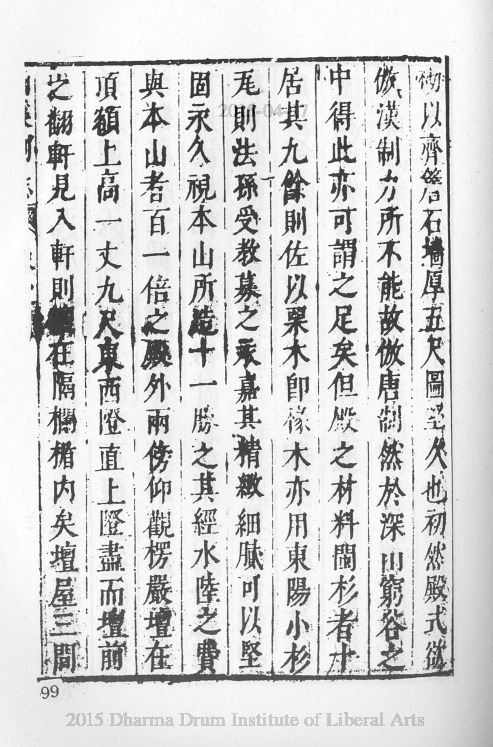 砌以齊簷石墻厚五尺圖堅久也初然殿式欲
倣漢制力所不能故倣唐制然於深山窮谷之
中得此亦可謂之足矣但殿之材料閩杉者十
居其九餘則佐以栗木即椽木亦用東陽小杉
瓦則法孫受教募之永嘉其精緻細膩可以堅
固永久視本山所造十一勝之其經水陸之費
與本山者百一倍之殿外兩傍仰觀楞嚴壇在
項額上高一丈九尺東西隥直上隥盡而壇前
之翻軒見入軒則在隔欄楯內矣壇屋三間
99
2015 Dharma Drum Institute of Liberal Arts